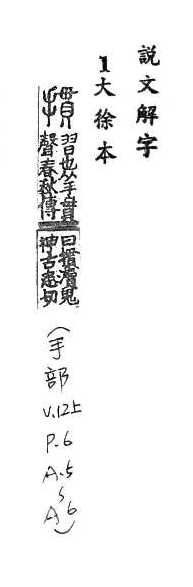 説文解字
1大徐本
摜
習也从手貫
聲春秋傳
曰摜瀆鬼
神古患切
(手部
V.12上
P.6
A.5
~
A6)